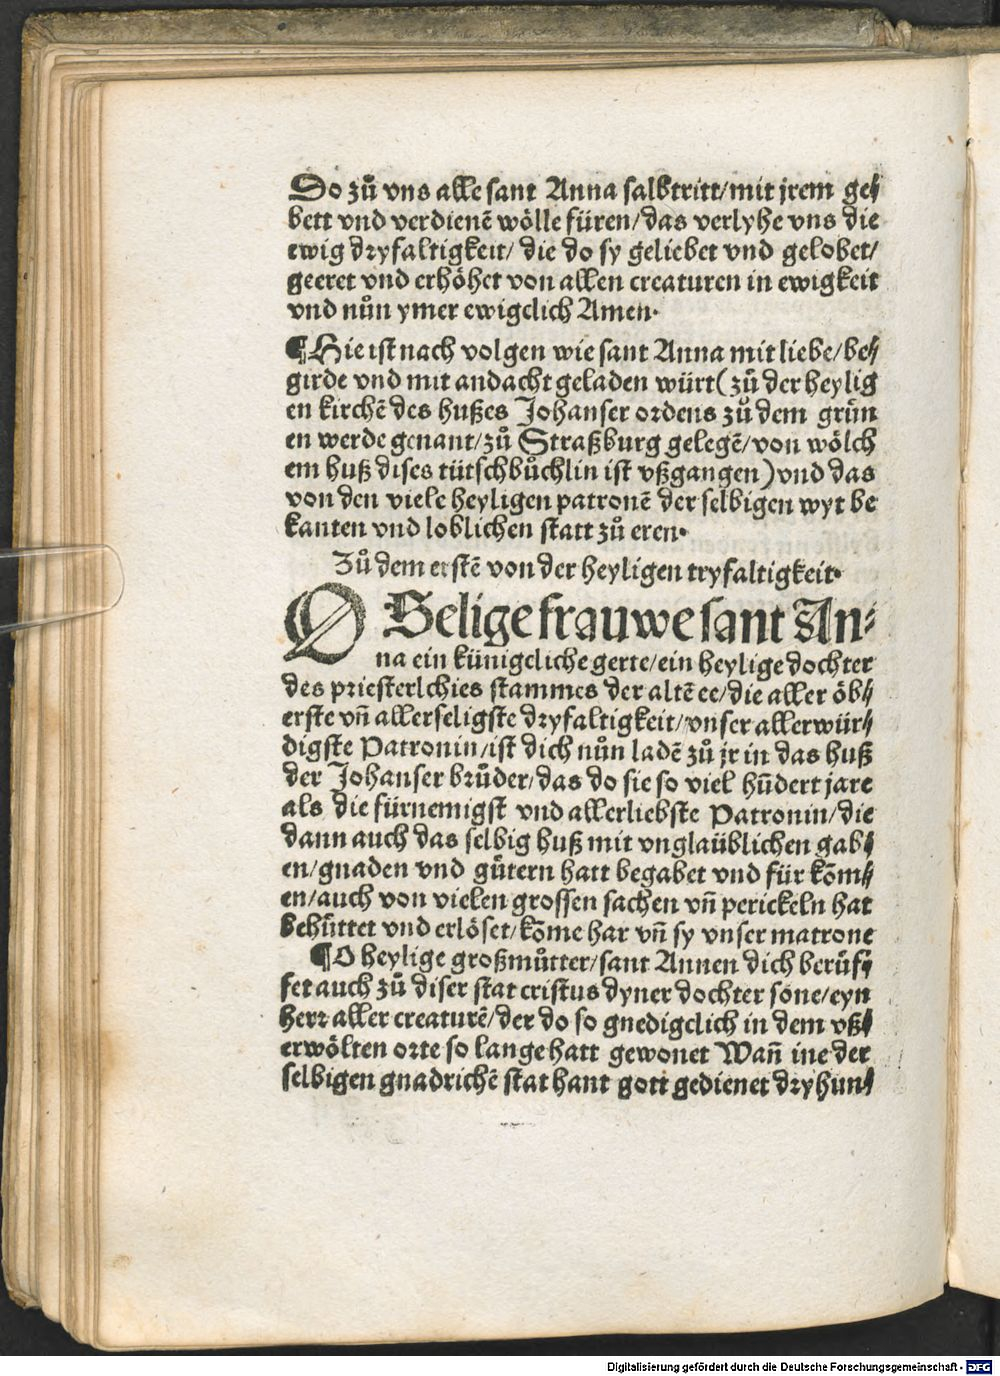 Do zů vns alle sant Anna salbtritt/mit jrem ge⸗
bett vnd verdienē wölle füren/das verlyhe vns die
ewig dryfaltigkeit/ die do sy geliebet vnd gelobet/
geeret vnd erhöhet von allen creaturen in ewigkeit
vnd nůn ymer ewigclich Amen·
¶Hie ist nach volgen wie sant Anna mit liebe/be⸗
girde vnd mit andacht geladen würt(zů der heylig
en kirchē des hußes Johanser ordens zů dem grün
en werde genant/zů Straßburg gelegē/von wölch
em huß dises tütschbůchlin ist vßgangen)vnd das
von den viele heyligen patronē der selbigen wyt be
kanten vnd loblichen statt zů eren·
Zů dem erstē von der heyligen tryfaltigkeit·
O Selige frauwe sant An⸗
na ein künigcliche gerte/ein heylige dochter
des priesterlchies stammes der altē ee/die aller öb⸗
erste vñ allerseligste dryfaltigkeit/vnser allerwür⸗
digste Patronin/ist dich nůn ladē zů jr in das huß
der Johanser brůder/das do sie so viel hūdert jare
als die fürnemigst vnd allerliebste Patronin/die
dann auch das selbig huß mit vnglaüblichen gab⸗
en/gnaden vnd gütern hatt begabet vnd für kōm⸗
en/auch von vielen grossen sachen vñ perickeln hat
behüttet vnd erlöset/kōme har vñ sy vnser matrone
¶O heylige großmůtter/sant Annen dich berüf⸗
fet auch zů diser stat cristus dyner dochter sone/eyn
herr aller creaturē/der do so gnedigclich in dem vß⸗
erwölten orte so lange hatt gewonet Wañ ine der
selbigen gnadrichē stat hant gott gedienet dryhun⸗
Digitalisierung gefördert durch die Deutsche Forschungsgemeinschaft - DFG